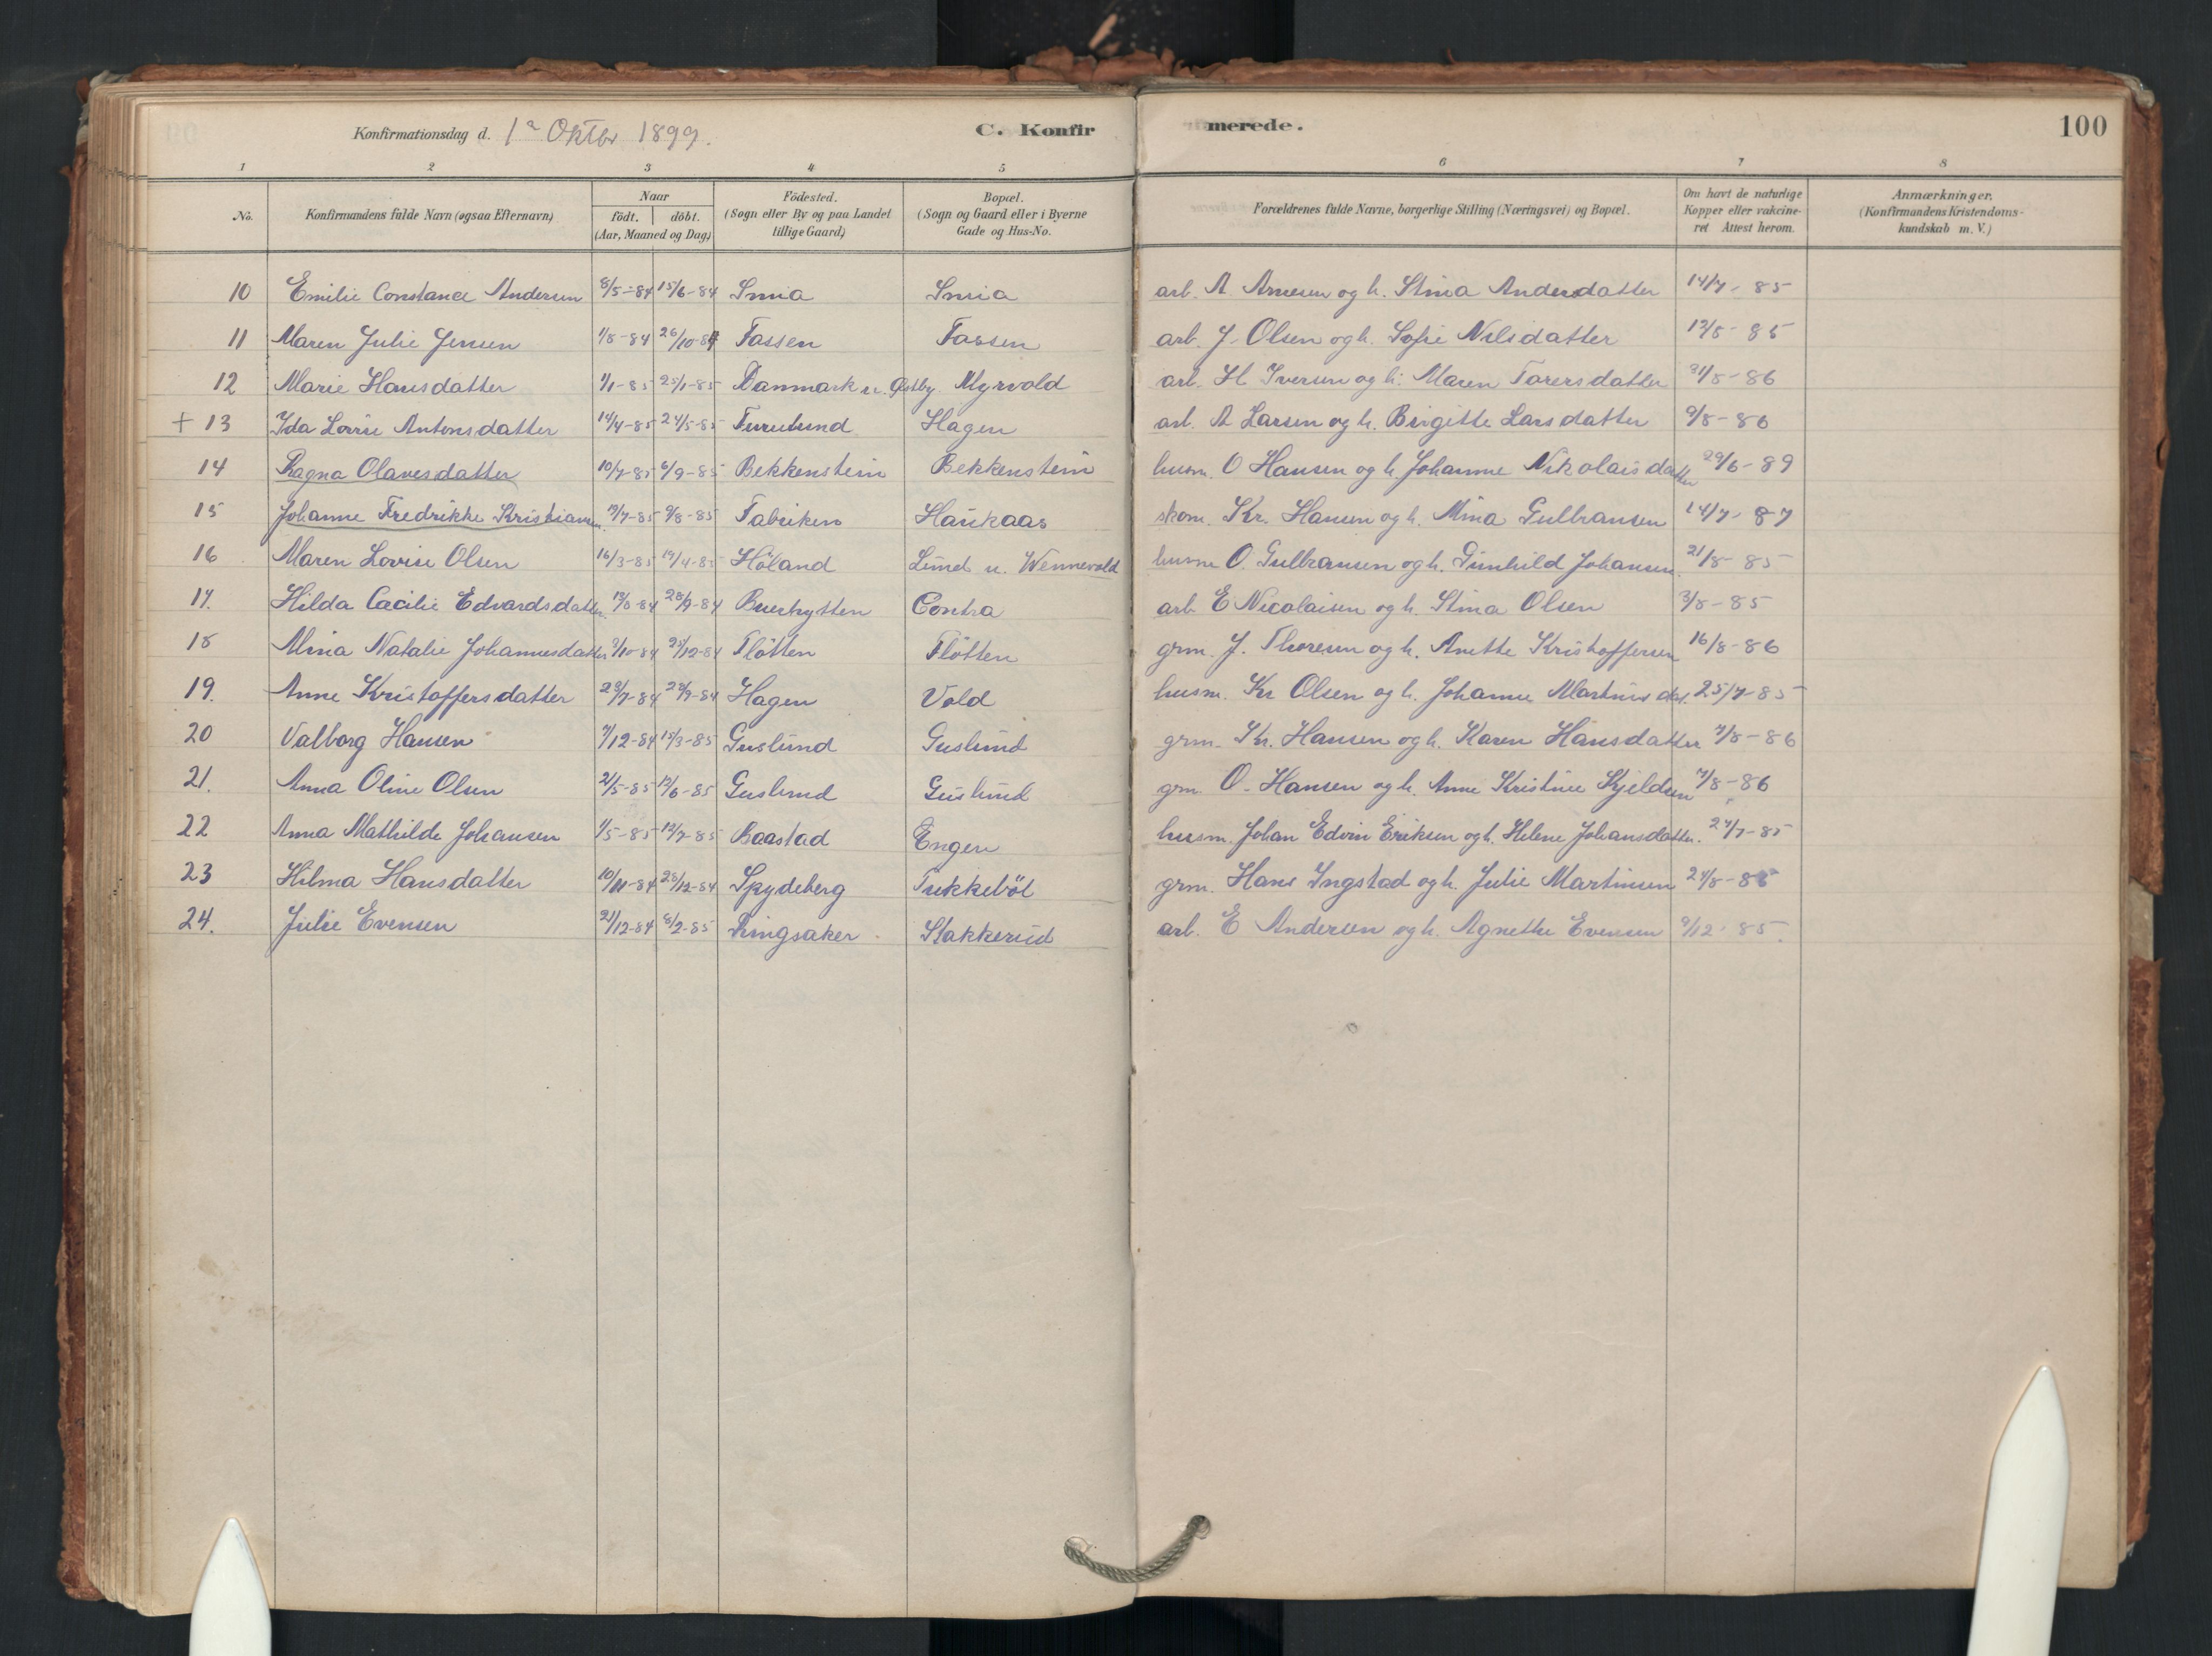 Konfirmationsdag d. 1ª Oktbr 1899. C. Konfir merede. 100
1 2 3 4 5 6 7 8
No. Konfirmandens fulde Navn (ogsaa Efternavn) Naar födt. döbt. (Aar, Maaned og Dag) Födested. (Sogn eller By og paa Landet tillige Gaard) Bopæl. (Sogn og Gaard eller i Byerne Gade og Hus-No. Forældrenes fulde Navne, borgerlige Stilling (Næringsvei) og Bopæl. Om havt de naturlige Kopper eller vakcineret Attest herom. Anmærkninger. (Konfirmandens Kristendomskundskab m. V.)
10 Emilie Constance Andersen 8/5-84 15/6-84 Smia Smia arb. A. Arnesen og h. Stina Andersdatter 14/7-85
11 Maren Julie Jensen 1/8-84 26/10-84 Fassen Fassen arb. J. Olsen og h. Sofie Nilsdatter 13/8-85
12 Marie Hansdatter 1/1-85 25/1-85 Danmark u. Østby Myrvold arb. H Iversen og h. Maren Torersdatter 31/8-86
+ 13 Ida Lovise Antonsdatter 14/4-85 24/5-85 Furulund Hagen arb. A Larsen og h. Birgitte Larsdatter 9/8-86
14 Ragna Olavesdatter 10/7-85 6/9-85 Bekkenstein Bekkenstein husm. O Hansen og h. Johanne Nikolaisdatter 29/6-89
15 Johanne Fredrikke Kristiansen 9/8-85 Fabriken Haukaas skom. Kr. Hansen og h. Mina Gulbransen 14/7-87
16 Maren Lovise Olsen 16/3-85 19/4-85 Höland Lund u. Wennevold husm O. Gulbransen og h. Gunhild Johansen. 21/8-85
17. Hilda Cæcilie Edvardsdatter. 28/9-84 Buerhytten Contra arb. E Nicolaisen og h. Stina Olsen 3/8-85
18 Mina Natalie Johannesdatter 9/10-84 Flötten Flötten grm. J. Thoresen og h. Anette Kristoffersen 16/8-86
19. Anne Kristoffersdatter 29/7-84 Hagen Vold husm. Kr Olsen og h. Johanne Martinusdat. 25/7-85
20 Valborg Hansen 7/12-84 15/3-85 Guslund Guslund grm. Kr. Hansen og h. Karen Hansdatter 7/8-86
21. Anna Oline Olsen 21/5-85 Guslund Guslund grm. O. Hansen og h. Anne Kristine Kjeldsen 7/8-86
22 Anna Mathilde Johansen 1/5-85 12/7-85 Baastad Engen husm. Johan Edvin Eriksen og h. Helene Johansdatter. 27/7-85
23 Hilma Hansdatter 10/11-84 28/12-84 Spydeberg Tukkeböl grm. Hans Ingstad og h. Julie Martinsen 24/8-86
24. Julie Evensen 21/12-84 8/2-85 Ringsaker Stakkerud arb. E Andersen og h. Agnethe Evensen 9/12-85.